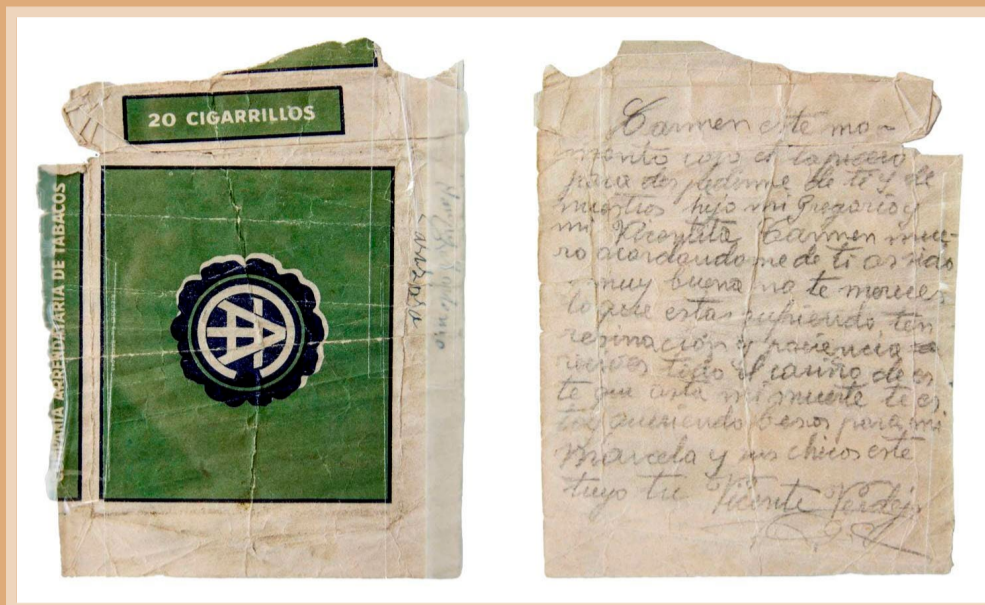 20 CIGARRILLOS
COMPAÑIA ARRENDATARIA DE TABACOS
Carmen este mo-
mento cojo el lapicero
para despedirme de ti y de
nuestros hijo mi Gregorio y
mi Vicentita Carmen mue-
ro acordandome de ti as sido
muy buena no te merece
lo que estas sufriendo ten
resinación y paciencia
recives todo el cariño de es
te que asta mi muerte te es
toy queriendo besos para mi
Marcela y sus chicos este
tuyo tu Vicente Verdejo